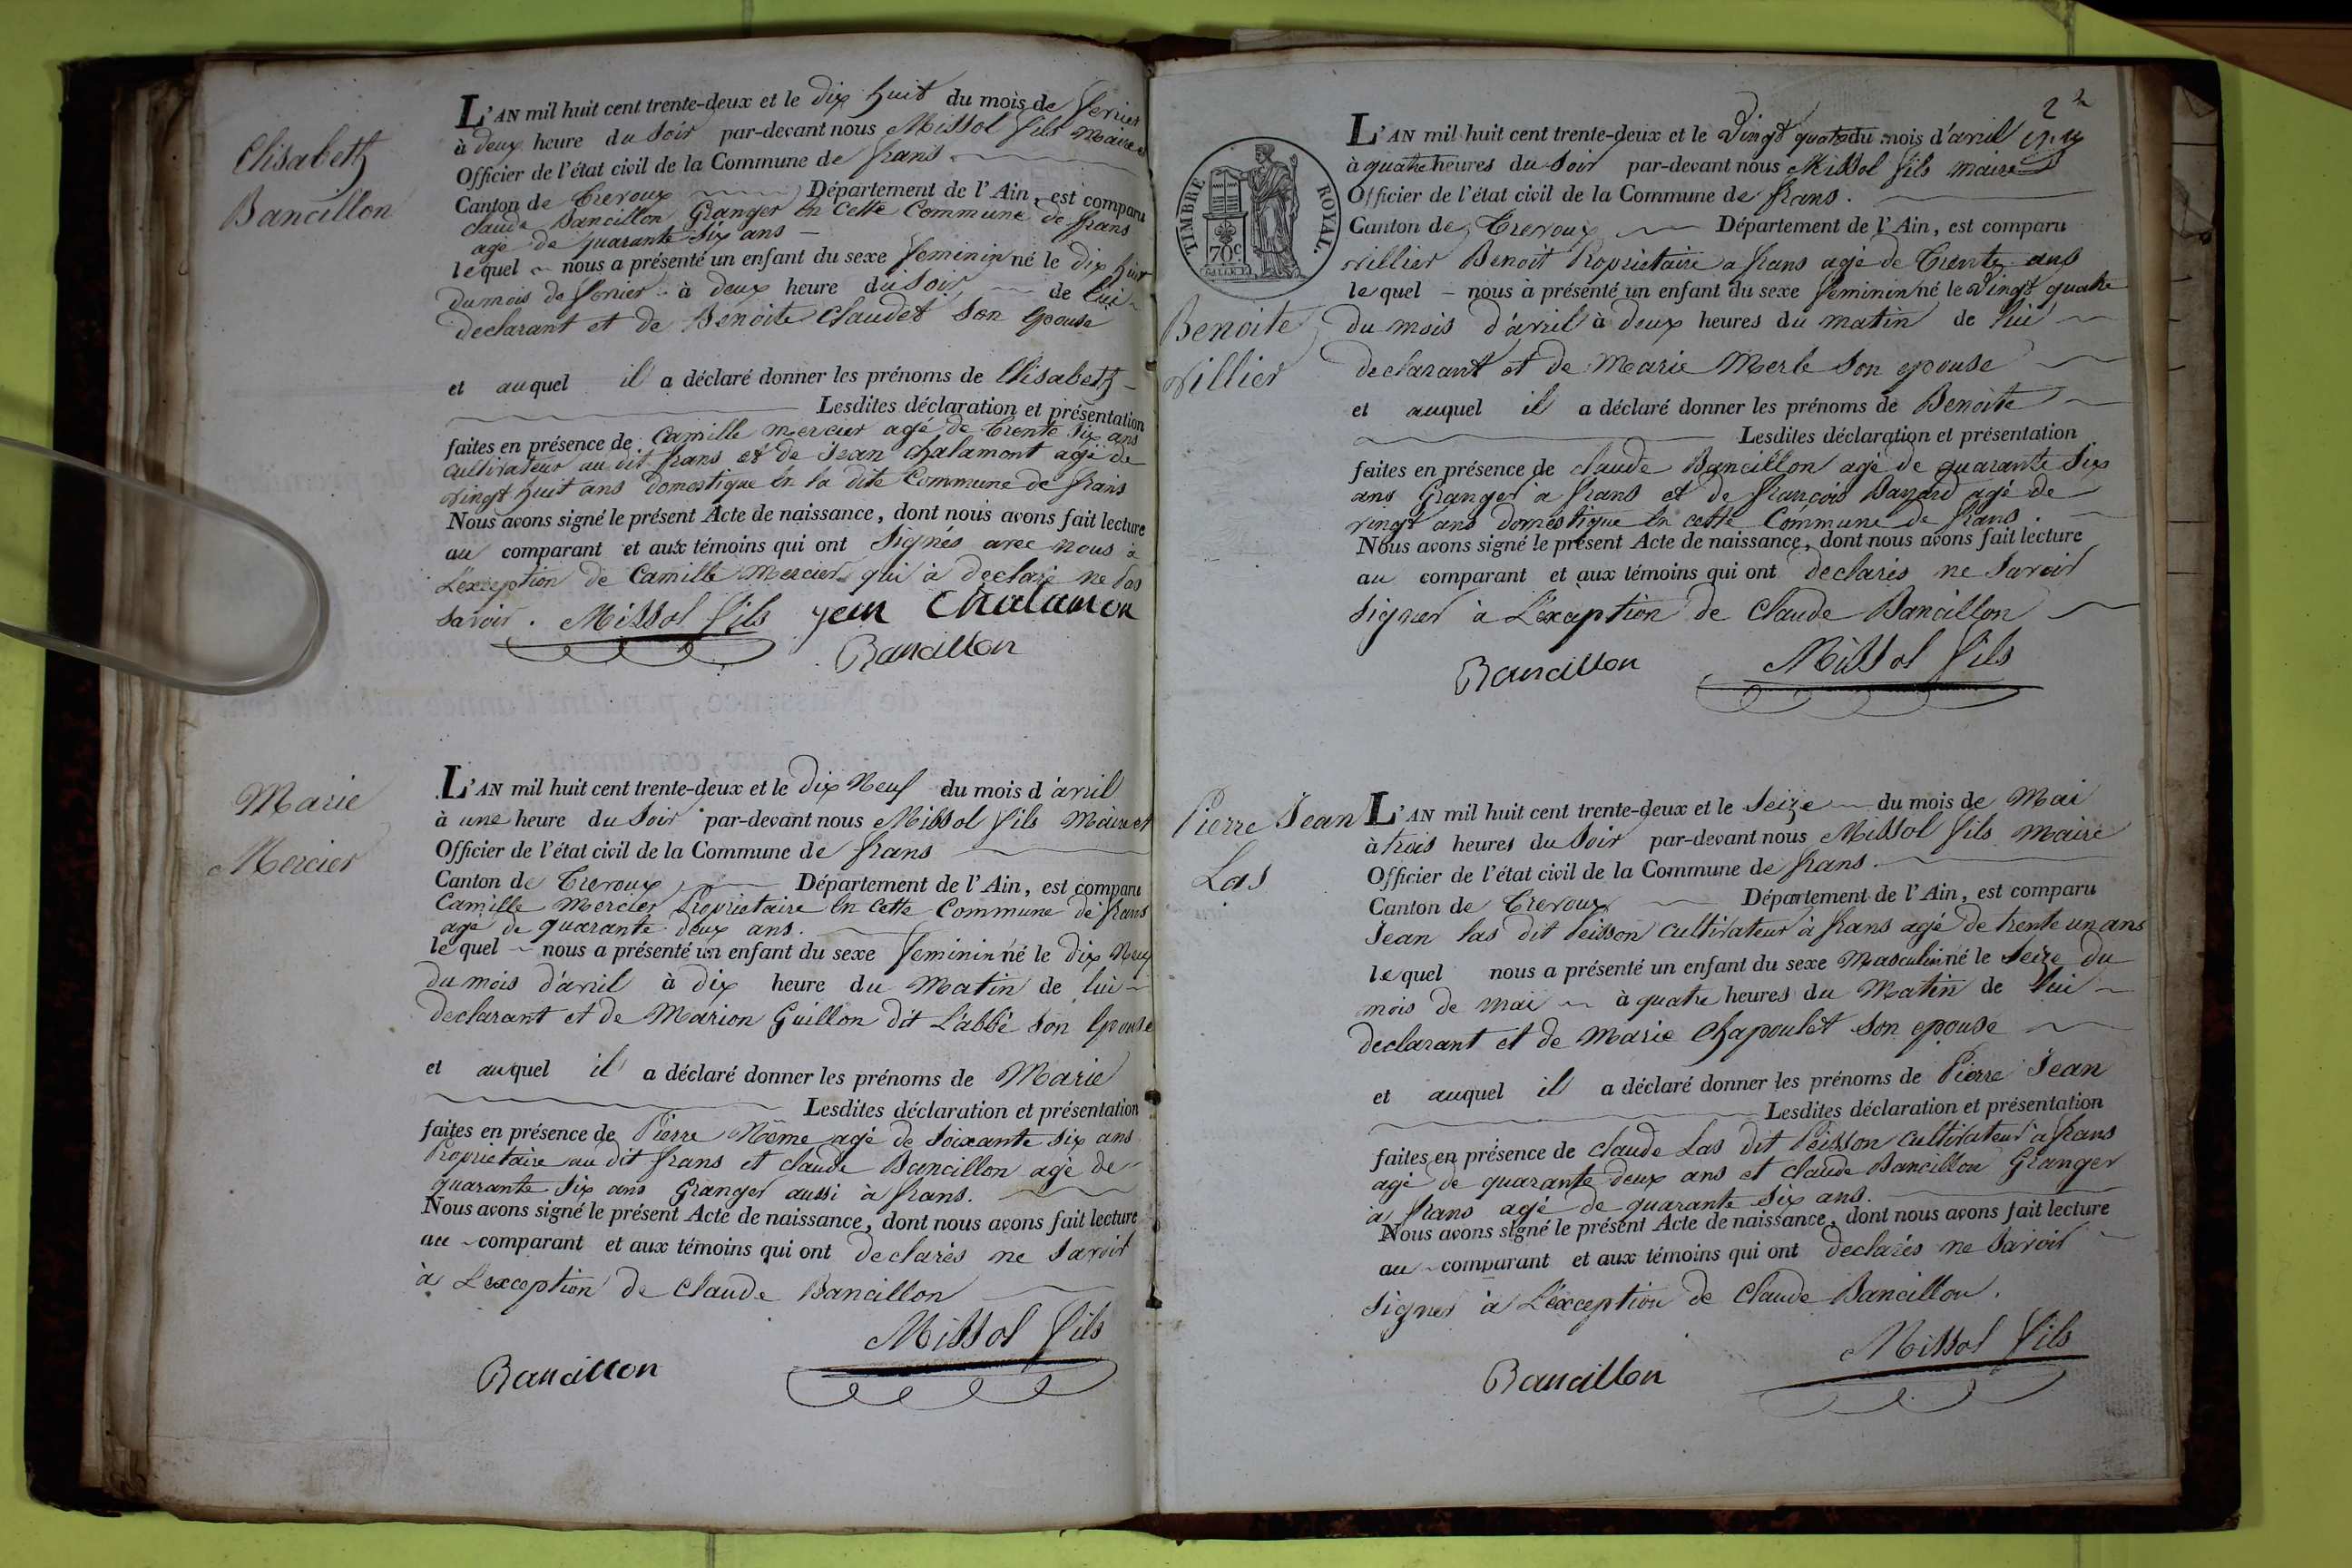 Elisabeth
Bancillon
L'AN mil huit cent trente-deux et le dix huit du mois de fevrier
à deux heure du soir par-devant nous Missol fils Maire et
Officier de l'état civil de la Commune de frans
Canton de Trevoux Département de l'Ain, est comparu
claude Bancillon Granger en cette Commune de frans
agé de quarante six ans
lequel nous a présenté un enfant du sexe feminin né le dix huit
du mois de fevrier à deux heure du soir de lui
declarant et de Benoite Claudet son epouse
et auquel il a déclaré donner les prénoms de Elisabeth
Lesdites déclaration et présentation
faites en présence de Camille mercier agé de trente six ans
cultivateur au dit frans et de Jean Chalamont agé de
vingt huit ans domestique en la dite Commune de frans
Nous avons signé le présent Acte de naissance, dont nous avons fait lecture
au comparant et aux témoins qui ont signés avec nous à
L'exception de Camille Mercier qui à declaré ne pas
savoir. Missol fils jean Chalamon
Bancillon
Marie
Mercier
L'AN mil huit cent trente-deux et le dix Neuf du mois d'avril
à une heure du soir par-devant nous Missol fils Maire et
Officier de l'état civil de la Commune de frans
Canton de Trevoux Département de l'Ain, est comparu
Camille Mercier Proprietaire en cette Commune de frans
agé de quarante deux ans.
le quel nous a présenté un enfant du sexe feminin né le dix Neuf
du mois d'avril à dix heure du Matin de lui
declarant et de Marion Guillon dit L'abbé son epouse
et auquel il a déclaré donner les prénoms de Marie
Lesdites déclaration et présentation
faites en présence de Pierre Nöeme agé de soixante six ans
Proprietaire au dit frans et claude Bancillon agé de
quarante six ans Granger aussi à frans.
Nous avons signé le présent Acte de naissance, dont nous avons fait lecture
au comparant et aux témoins qui ont declarés ne savoir
à L'exception de Claude Bancillon
Missol fils
Bancillon
2
TIMBRE ROYAL.
70c
Benoite
villier
L'AN mil huit cent trente-deux et le vingt quatre du mois d'avril
à quatre heures du soir par-devant nous Missol fils maire
Officier de l'état civil de la Commune de frans.
Canton de Trevoux Département de l'Ain, est comparu
villier Benoit Proprietaire a frans agé de trente ans
le quel nous à présenté un enfant du sexe feminin né le vingt quatre
du mois d'avril à deux heures du matin de lui
declarant et de Marie Merle son epouse
et auquel il a déclaré donner les prénoms de Benoite
Lesdites déclaration et présentation
faites en présence de claude Bancillon agé de quarante six
ans Granger a frans et de françois Bayard agé de
vingt ans domestique en cette Commune de frans
Nous avons signé le présent Acte de naissance, dont nous avons fait lecture
au comparant et aux témoins qui ont declarés ne savoir
signer à L'exception de Claude Bancillon
Bancillon Missol fils
Pierre Jean
Las
L'AN mil huit cent trente-deux et le seize du mois de Mai
à trois heures du soir par-devant nous Missol fils Maire
Officier de l'état civil de la Commune de frans.
Canton de Trevoux Département de l'Ain, est comparu
Jean las dit Peisson cultivateur à frans agé de trente un ans
lequel nous a présenté un enfant du sexe Masculin né le seize du
mois de mai à quatre heures du Matin de lui
declarant et de Marie Chapoulet son epouse
et auquel il a déclaré donner les prénoms de Pierre Jean
Lesdites déclaration et présentation
faites en présence de claude Las dit Peisson cultivateur a frans
agé de quarante deux ans et claude Bancillon Granger
à frans agé de quarante six ans.
Nous avons signé le présent Acte de naissance, dont nous avons fait lecture
au comparant et aux témoins qui ont declarés ne savoir
signer à L'exception de Claude Bancillon.
Missol fils
Bancillon